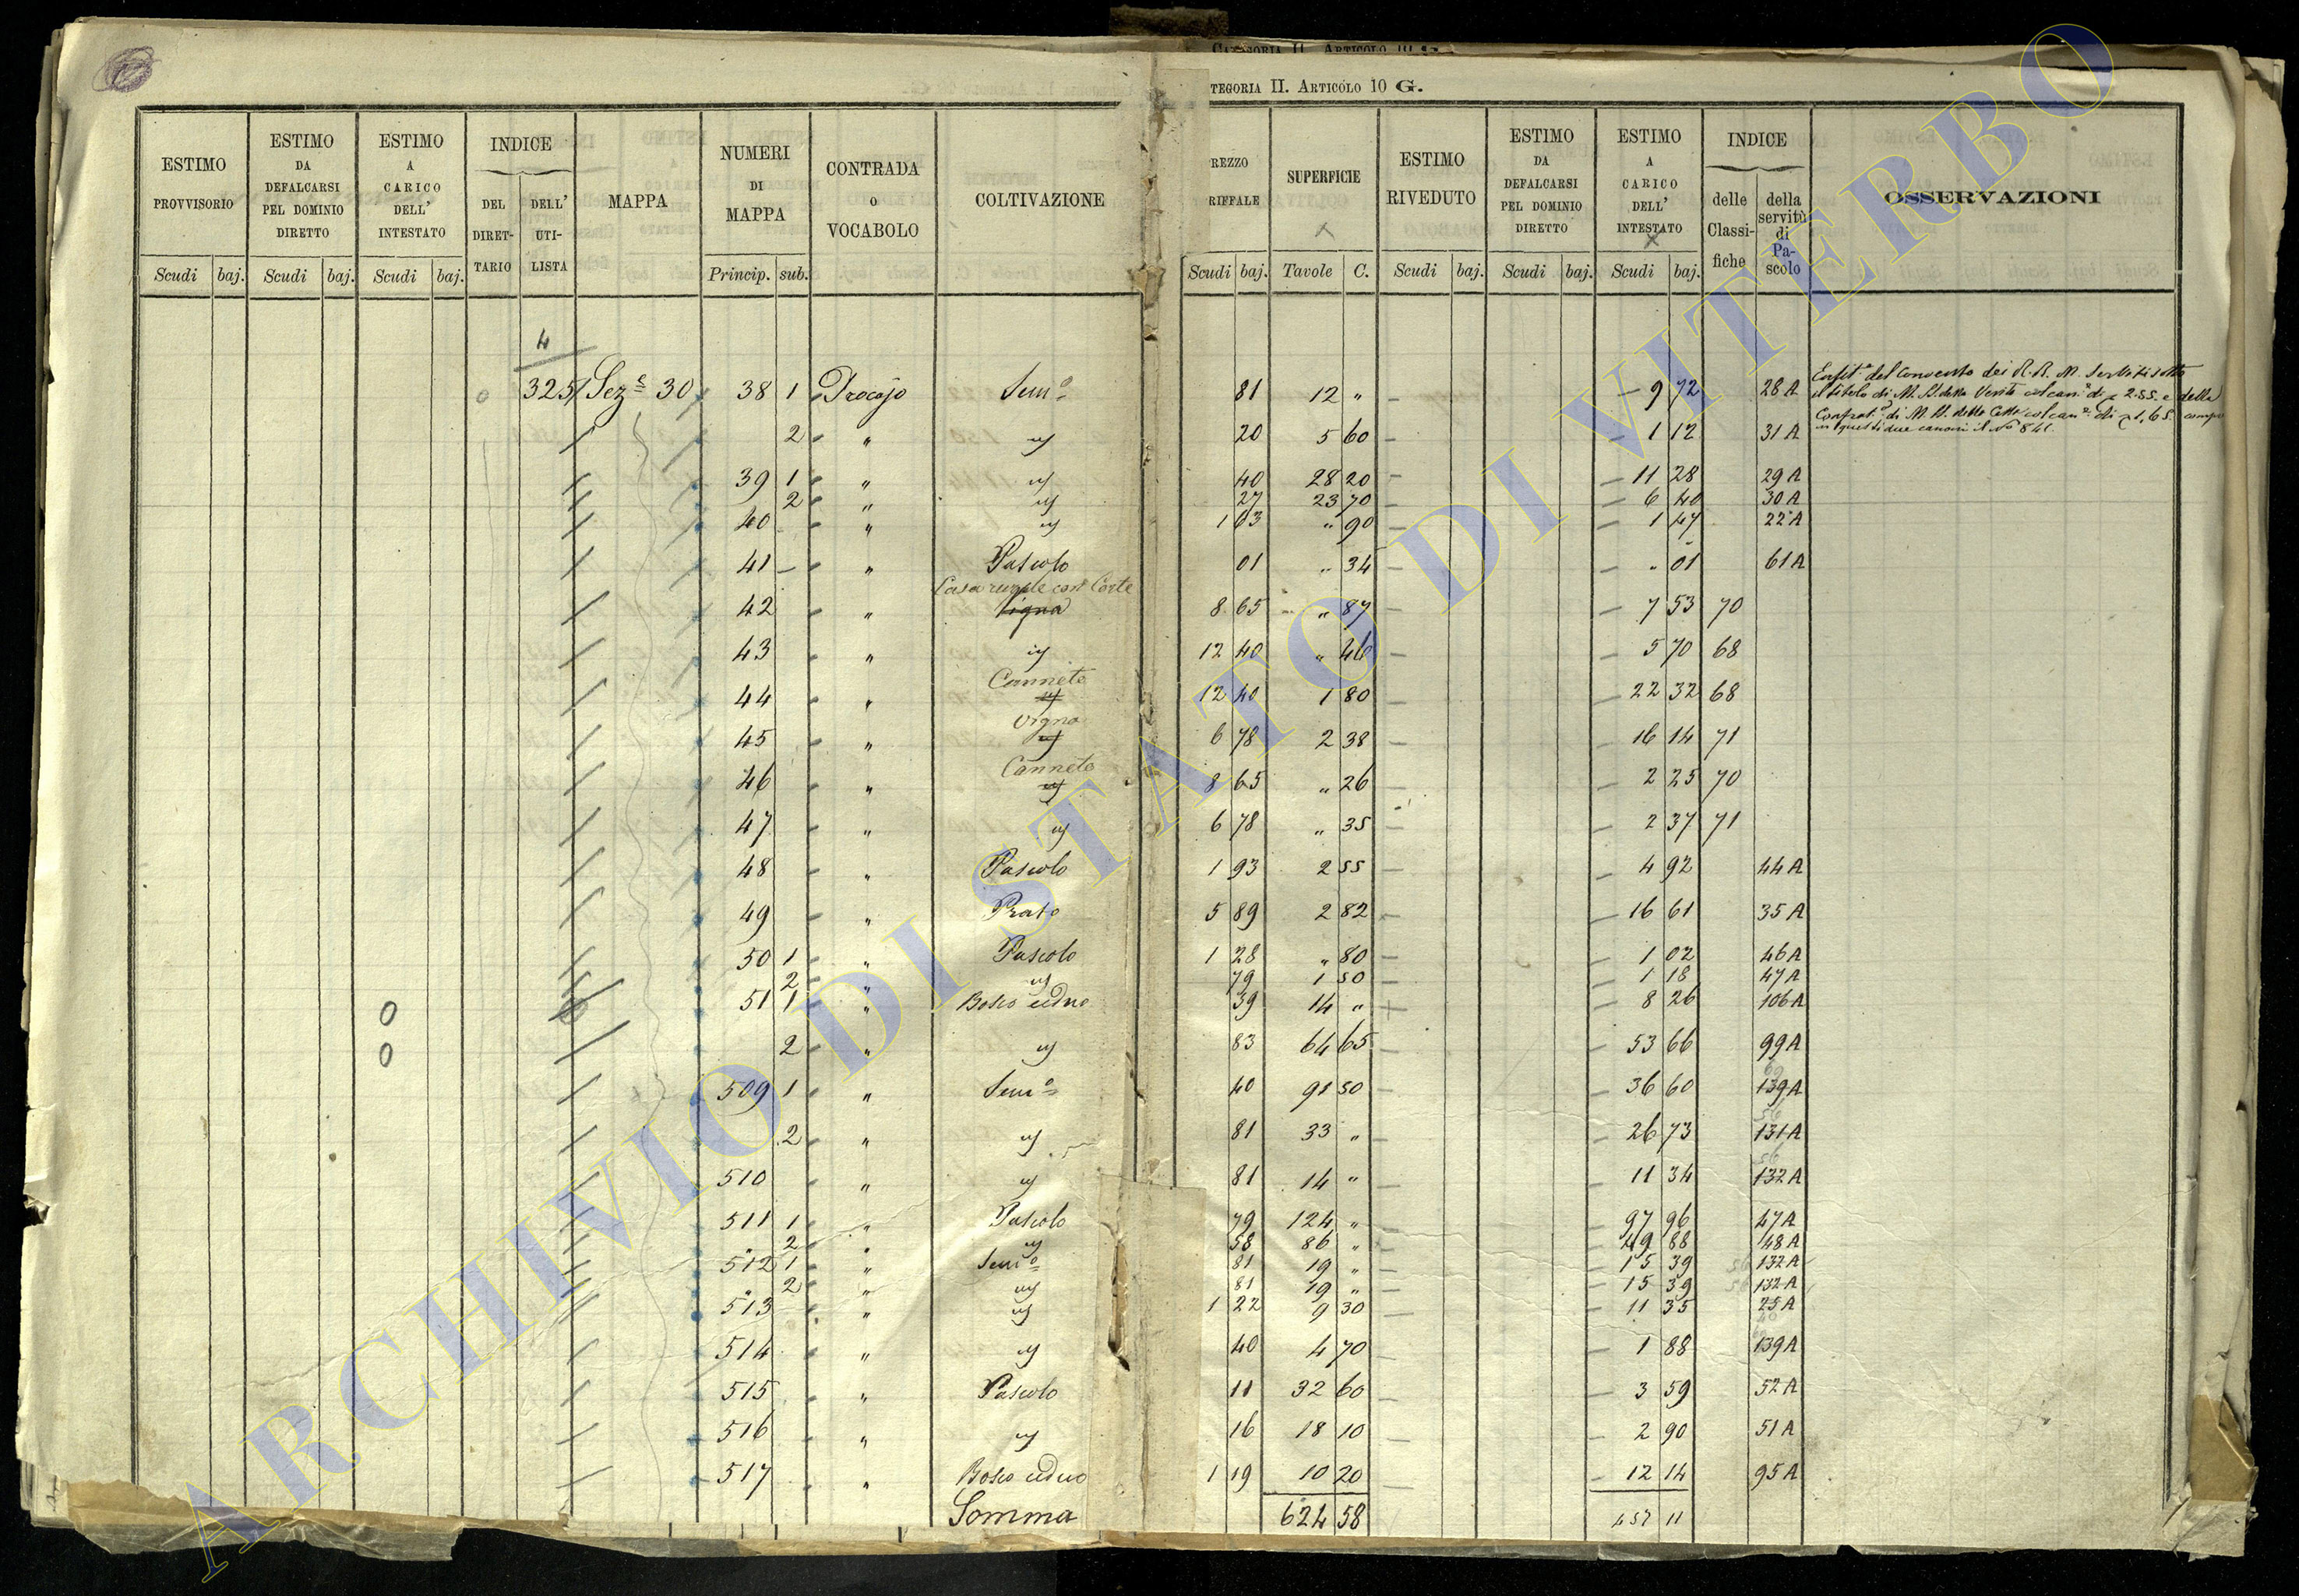 CATEGORIA II. ARTICOLO 10 G.
TEGORIA II. ARTICOLO 10 G.
ESTIMO PROVVISORIO Scudi baj.
ESTIMO DA DEFALCARSI PEL DOMINIO DIRETTO Scudi baj.
ESTIMO A CARICO DELL' INTESTATO Scudi baj.
INDICE DEL DIRET-TARIO DELL' UTI-LISTA
MAPPA
NUMERI DI MAPPA Princip. sub.
CONTRADA o VOCABOLO
COLTIVAZIONE
REZZO RIFFALE Scudi baj.
SUPERFICIE Tavole C.
ESTIMO RIVEDUTO Scudi baj.
ESTIMO DA DEFALCARSI PEL DOMINIO DIRETTO Scudi baj.
ESTIMO A CARICO DELL' INTESTATO Scudi baj.
INDICE delle Classi-fiche della servitù di Pa-scolo
OSSERVAZIONI
4
3251 Sez.e 30 38 1 Procojo Sem.o 81 12 " 9 72 28 A
Enfit.a del Convento dei R.R. M. Serviti sotto
il titolo di M. S. della Verità col can. di 2.55 e della
Confrat. di M. S. delle Celle col can. di 1,65.
in questi due canoni il No 841
2 " id 20 5 60 1 12 31 A
39 1 " id 40 28 20 11 28 29 A
2 " id 27 23 70 6 40 30 A
40 " id 1 63 " 90 1 47 22 A
41 " Pascolo 01 " 34 " 01 61 A
Casa rurale con Corte
42 " Vigna 8 65 " 87 7 53 70
43 " id 12 40 " 46 5 70 68
Canneto
44 " id 12 40 1 80 22 32 68
Vigna
45 " id 6 78 2 38 16 14 71
Canneto
46 " id 8 65 " 26 2 25 70
47 " id 6 78 " 35 2 37 71
48 " Pascolo 1 93 2 55 4 92 44 A
49 " Prato 5 89 2 82 16 61 35 A
50 1 " Pascolo 1 28 " 80 1 02 46 A
2 " id 79 1 50 1 18 47 A
0 51 1 " Bosco ceduo 59 14 " 8 26 106 A
0 2 " id 83 64 65 53 66 99 A
509 1 " Sem.o 40 91 50 36 60 139 A
2 " id 81 33 " 26 73 131 A
510 " id 81 14 " 11 34 132 A
511 1 " Pascolo 79 124 " 97 96 47 A
" 2 " id 58 86 " 49 88 48 A
512 1 " Sem.o 81 19 " 15 39 132 A
" 2 " id 81 19 " 15 39 132 A
513 " id 1 22 9 30 11 35 25 A
514 " id 40 4 70 1 88 139 A
515 " Pascolo 11 32 60 3 59 52 A
516 " id 16 18 10 2 90 51 A
517 " Bosco ceduo 1 19 10 20 12 14 95 A
Somma 624 58 457 11
ARCHIVIO DI STATO DI VITERBO